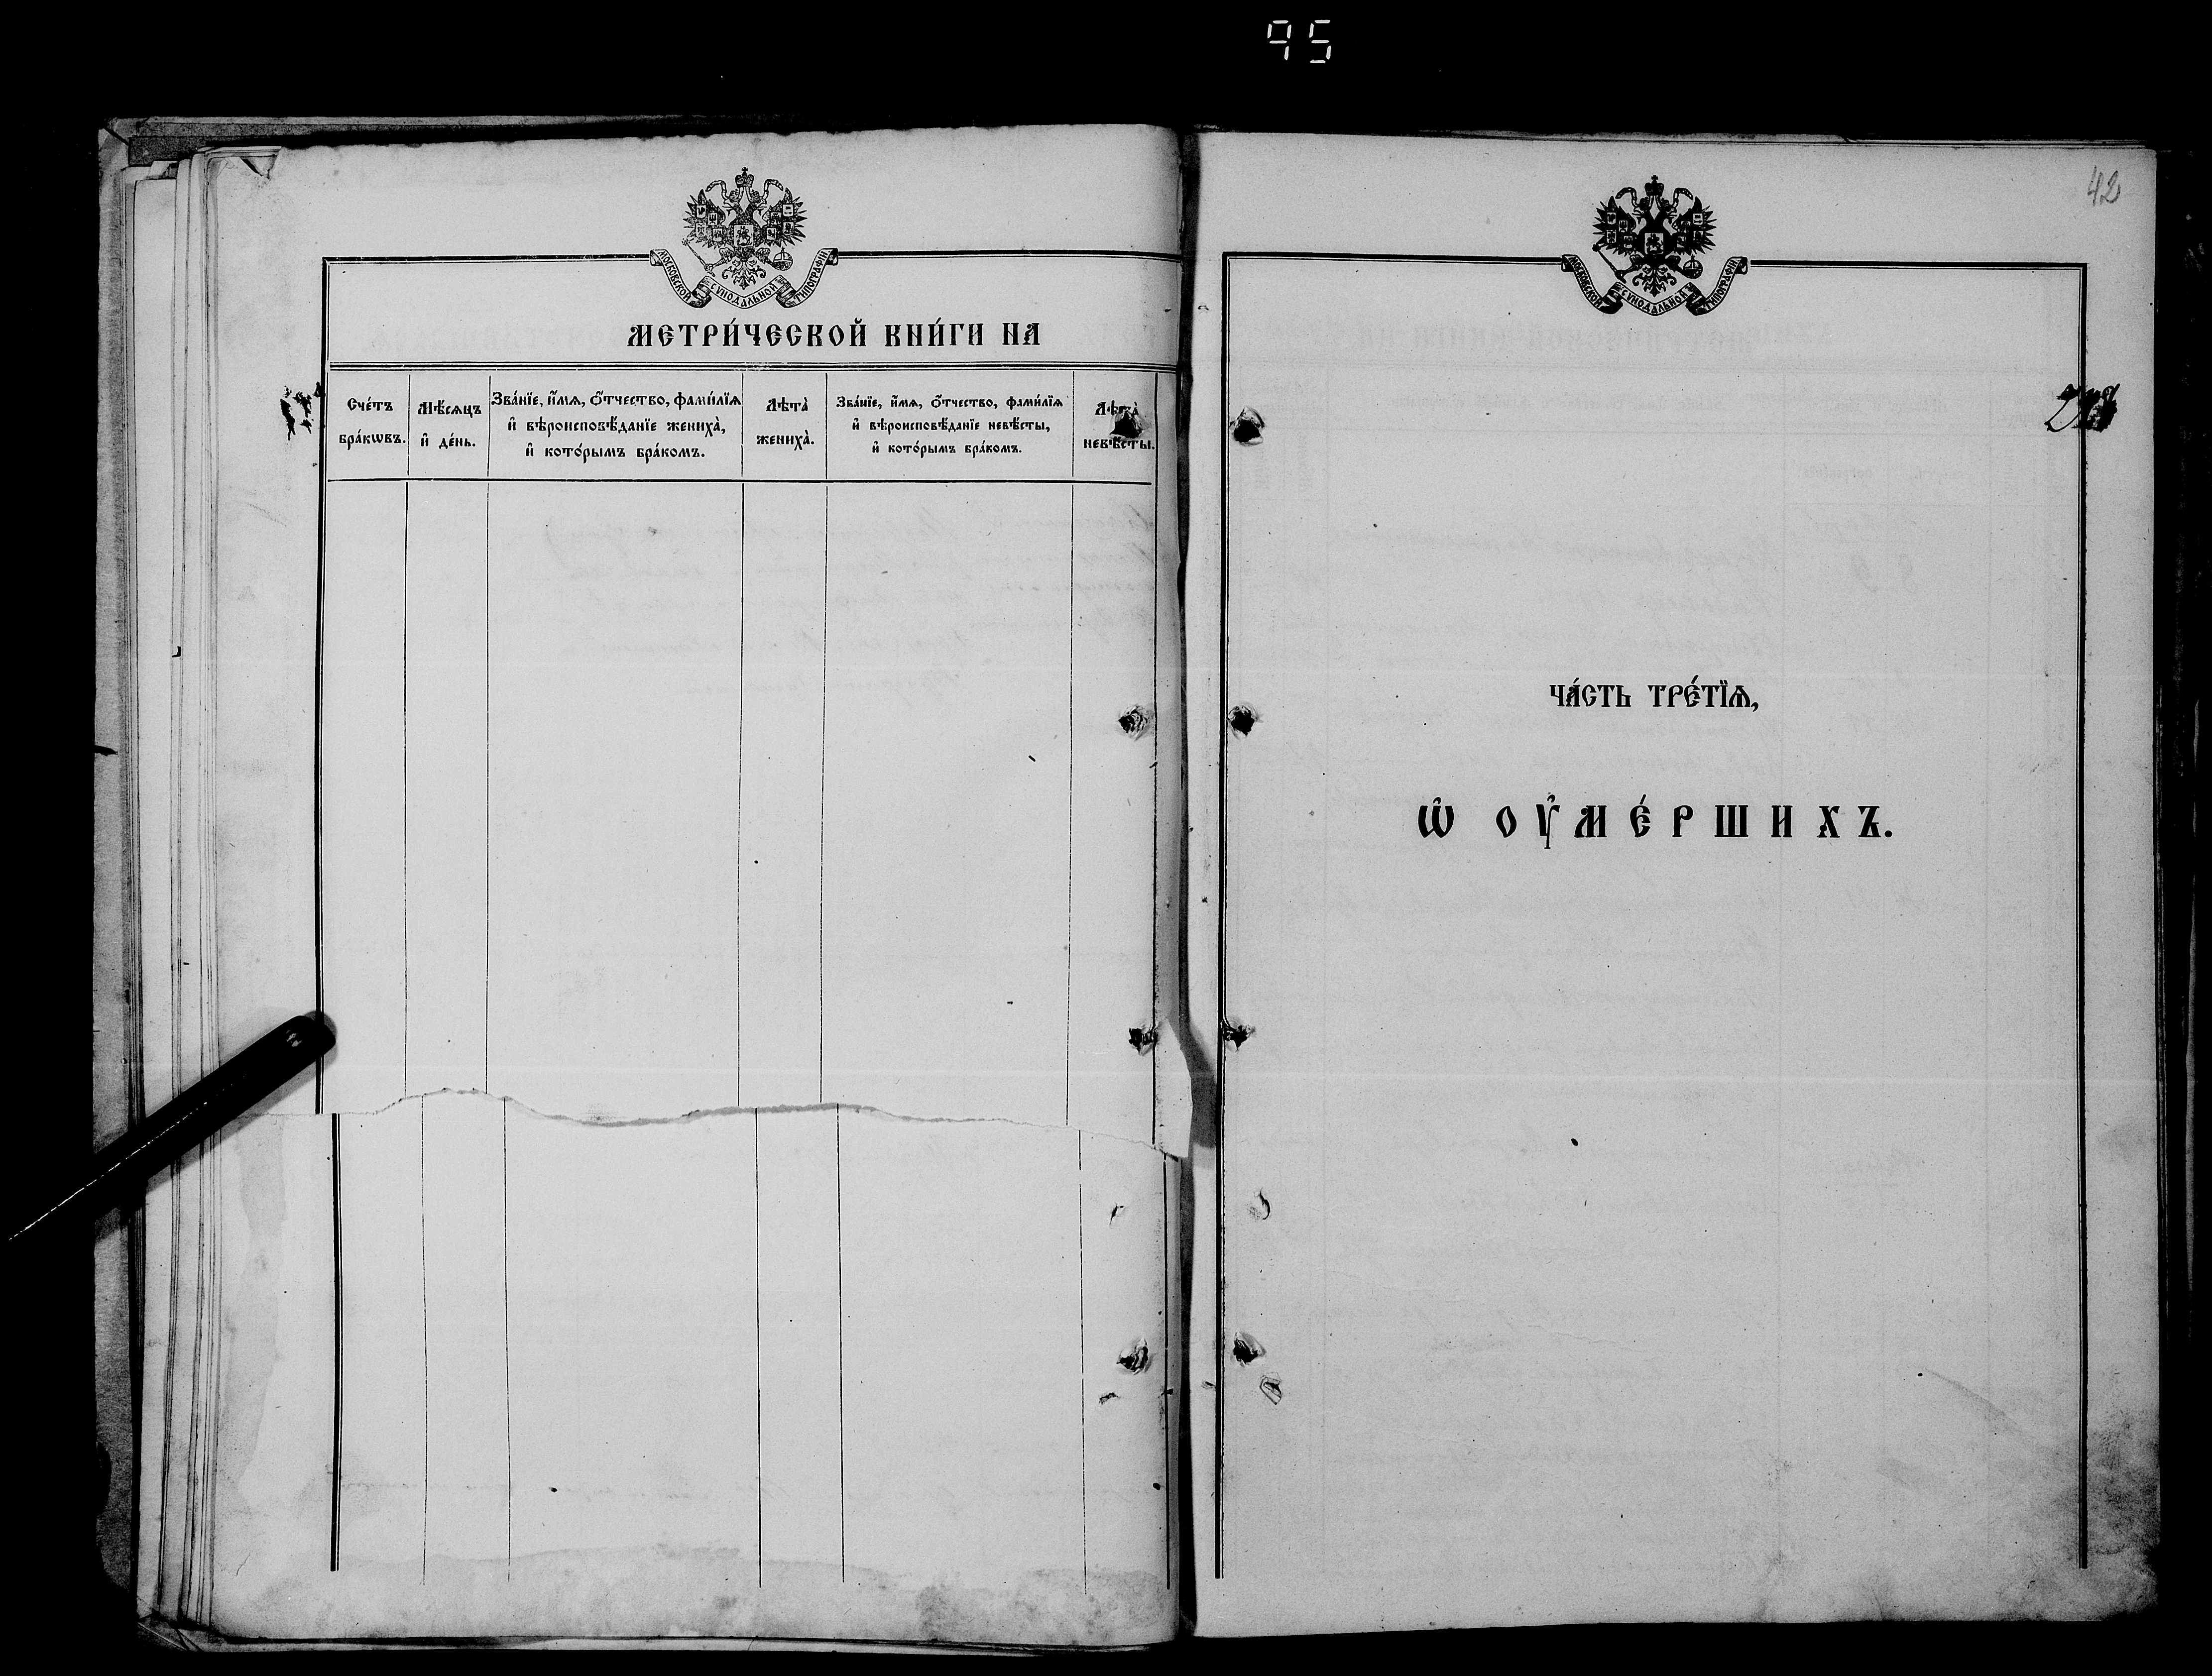 95
МОСКОВСКОЙ СѴНОДАЛЬНОЙ ТИПОГРАФІИ
МЕТРИ́ЧЕСКОЙ КНИ́ГИ НА
Сче́тъ бра́кѡвъ.
Мѣ́сяцъ и҆ де́нь.
Зва́нїе, и҆́мѧ, ѻ҆́тчество, фами́лїѧ
и҆ вѣроисповѣ́данїе женихà,
и҆ кото́рымъ бра́комъ.
Лѣтà женихà.
Зва́нїе, и҆́мѧ, ѻ҆́тчество, фами́лїѧ
и҆ вѣроисповѣ́данїе невѣ́сты,
и҆ кото́рымъ бра́комъ.
Лѣтà невѣ́сты.
42
МОСКОВСКОЙ СѴНОДАЛЬНОЙ ТИПОГРАФІИ
ЧА́СТЬ ТРЕ́ТЇѦ,
Ѡ҆ ОУ҆МЕ́РШИХЪ.